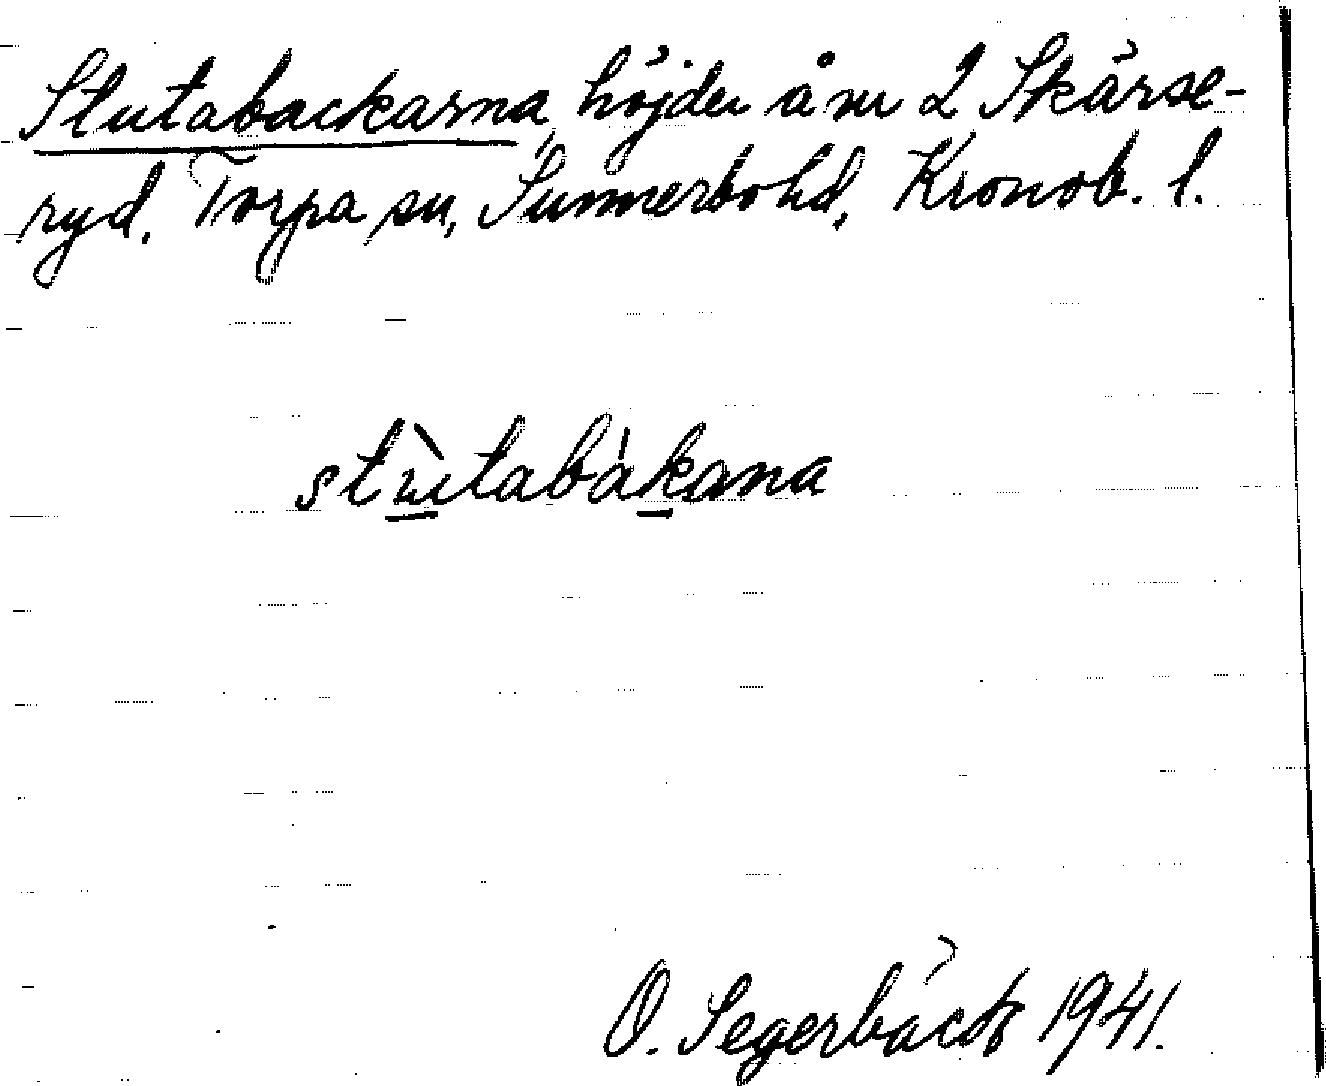 Stutabackarna, höjder å nr 2 Skärse-
ryd, Torpa sn, Sunnerbo hd, Kronob. l.
stù̱tabàḵana
O. Segerbäck 1941.